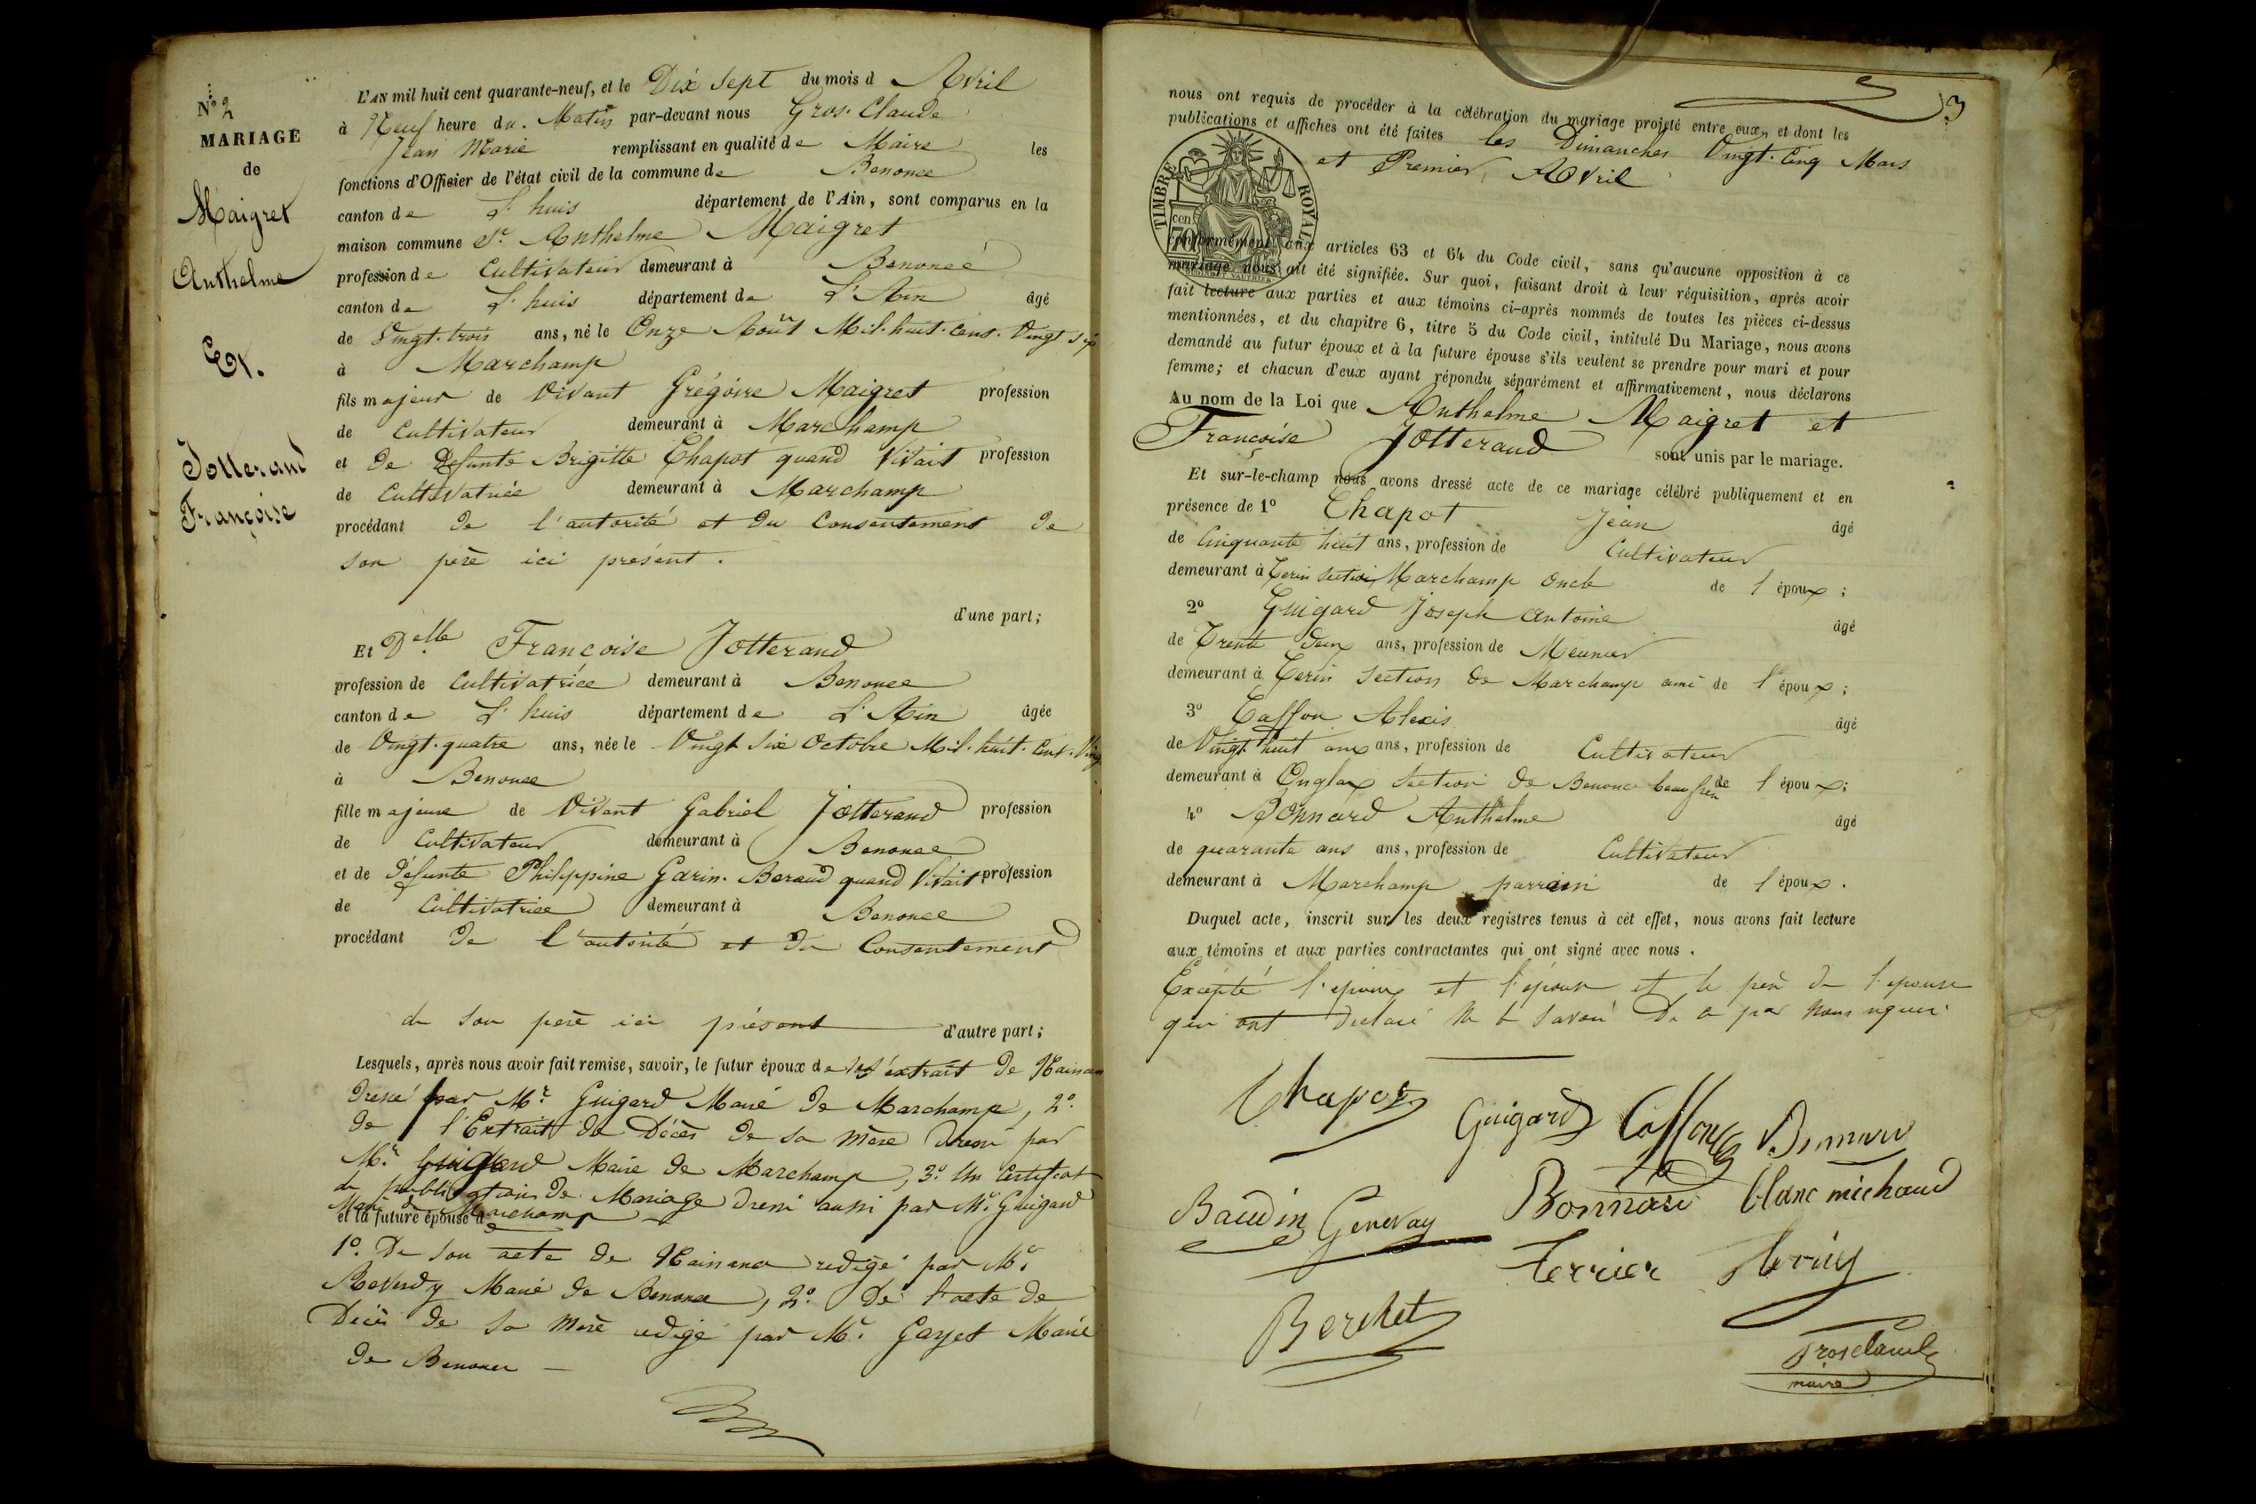 N° 2
MARIAGE
de
Maigret
Anthelme
Et.
Jotterand
Françoise
L'AN mil huit cent quarante-neuf, et le Dix sept du mois d Avril
à Neuf heure du. Matin par-devant nous Gros. Claude
Jean Marie remplissant en qualité de Maire les
fonctions d'Officier de l'état civil de la commune de Benonce
canton de L'huis département de l'Ain, sont comparus en la
maison commune Sr. Anthelme Maigret
profession de Cultivateur demeurant à Benonce
canton de L'huis département de L'Ain âgé
de Vingt-trois ans, né le Onze Août Mil-huit-Cent-Vingt
à Marchamp
fils majeur de Vivant Grégoire Maigret profession
de Cultivateur demeurant à Marchamp
et de Defunte Brigitte Chapot quand Vivait profession
de Cultivatrice demeurant à Marchamp
procédant de l'autorité et du Consentement de
son père ici présent.
d'une part;
Et Delle Francoise Jotterand
profession de Cultivatrice demeurant à Benonce
canton de L'huis département de L'Ain âgée
de Vingt-quatre ans, née le Vingt Six Octobre Mil-huit-Cent-Ving
à Benonce
fille majeure de Vivant Gabriel Jotterand profession
de Cultivateur demeurant à Benonce
et de Défunte Philippine Garin-Beraud quand Vivait profession
de Cultivatrice demeurant à Benonce
procédant de l'autorité et du Consentement
de son père ici présent d'autre part;
Lesquels, après nous avoir fait remise, savoir, le futur époux de extrait de Naissan
Dressé par Mr. Guigard Maire de Marchamp, 2°.
de l'Extrait de Décès de sa Mère Dressé par
Mr. Guigard Maire de Marchamp, 3°. Un Certificat
de publication de Mariage Dressé aussi par Mr. Guigard
Maire de Marchamp
et la future épouse d
1°. De son acte de Naissance redigé par Mr.
Maire de Benonce, 2°. De l'acte de
Décès de sa Mère redigé par Mr. Gayet Maire
de Benonce
3
nous ont requis de procéder à la célébration du mariage projeté entre eux, et dont les
publications et affiches ont été faites les Dimanches Vingt-Cinq Mars
et Premier Avril
TIMBRE ROYAL
cen
70
conformément aux articles 63 et 64 du Code civil, sans qu'aucune opposition à ce
mariage nous ait été signifiée. Sur quoi, faisant droit à leur réquisition, après avoir
fait lecture aux parties et aux témoins ci-après nommés de toutes les pièces ci-dessus
mentionnées, et du chapitre 6, titre 5 du Code civil, intitulé Du Mariage, nous avons
demandé au futur époux et à la future épouse s'ils veulent se prendre pour mari et pour
femme; et chacun d'eux ayant répondu séparément et affirmativement, nous déclarons
Au nom de la Loi que Anthelme Maigret et
Françoise Jotterand sont unis par le mariage.
Et sur-le-champ nous avons dressé acte de ce mariage célébré publiquement et en
présence de 1° Chapot Jean âgé
de Cinquante huit ans, profession de Cultivateur
demeurant à Cerin section Marchamp oncle de l'époux;
2° Guigard Joseph Antoine âgé
de Trente Deux ans, profession de Meunier
demeurant à Cerin section de Marchamp ami de l'époux;
3° Caffon Alexis âgé
de Vingt huit ans ans, profession de Cultivateur
demeurant à Onglas section de Benonce beau frère de l'époux;
4° Bonnard Anthelme âgé
de quarante ans ans, profession de Cultivateur
demeurant à Marchamp parrain de l'époux.
Duquel acte, inscrit sur les deux registres tenus à cet effet, nous avons fait lecture
aux témoins et aux parties contractantes qui ont signé avec nous.
Excepté l'époux et l'épouse et le père de l'épouse
qui ont declaré ne le savoir De ce par nous requis.
Chapot
Guigard Caffon
Baudin Genevay Bonnard blanc michaud
Terrier
Berchet
Grosclaude
maire